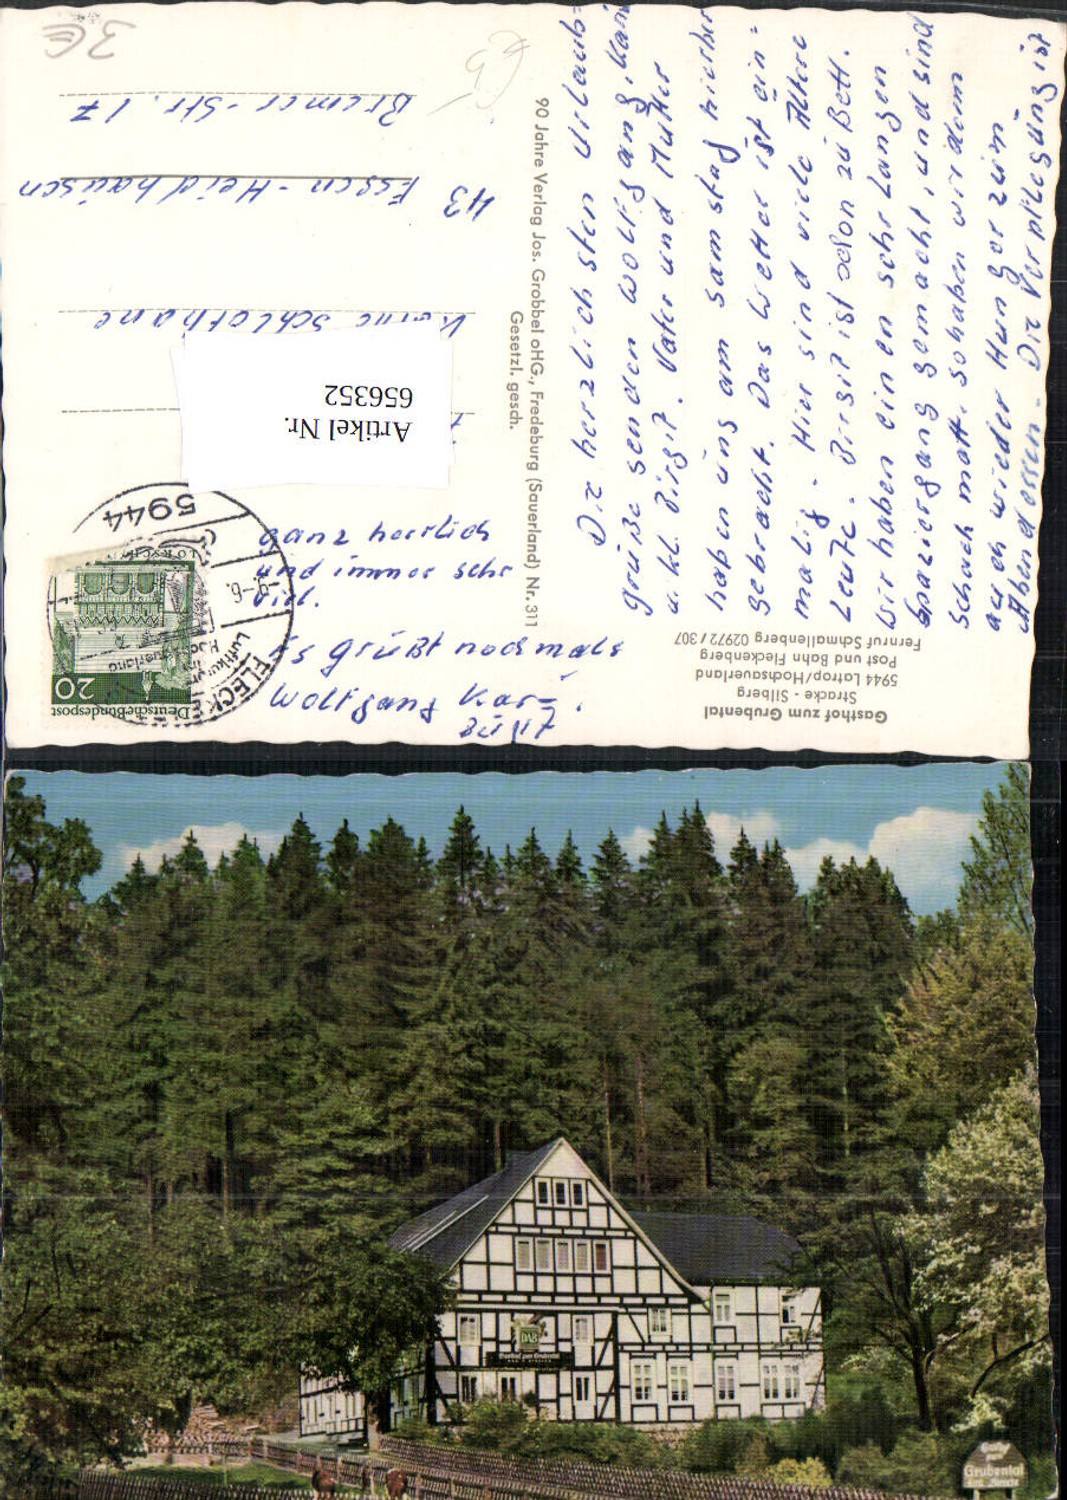 3€
Gasthof zum Grubental
Stracke - Silberg
5944 Latrop/Hochsauerland
Post und Bahn Fleckenberg
Fernruf Schmallenberg 02972 / 307
Die herzlichsten Urlaub=
grüße senden Wolfgang, Karin
u. kl. Birgit. Vater und Mutter
haben uns am Samstag hierher
gebracht. Das Wetter ist ein=
malig. Hier sind viele Ältere
Leute. Birgit ist schon zu Bett.
Wir haben einen sehr langen
Spaziergang gemacht, und sind
schach matt. So haben wir dann
auch wieder Hunger zum
Abendessen. Die Verpflegung ist
ganz herrlich
und immer sehr
viel.
Es grüßt nochmals
Wolfgang Kar=
90 Jahre Verlag Jos. Grobbel oHG., Fredeburg (Sauerland) Nr. 311
Gesetzl. gesch.
Deutsche Bundespost
20
LORSCH
5944
FLECKE
-9.-6.
Luftkurort
im
Hochsauerland
Artikel Nr.
656352
Schlothane
43 Essen-Heidhausen
Bremer-Str. 17
DAB
Gasthof zum Grubental
Gasthof
zum
Grubental